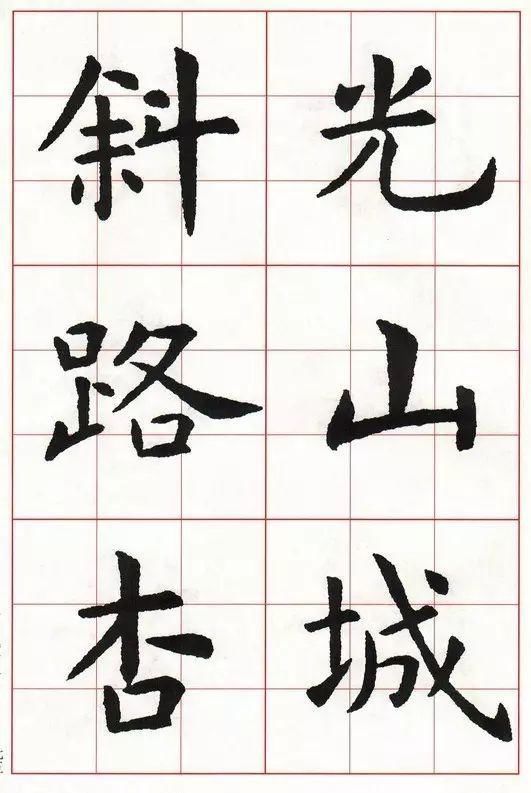 光山城
斜路杏